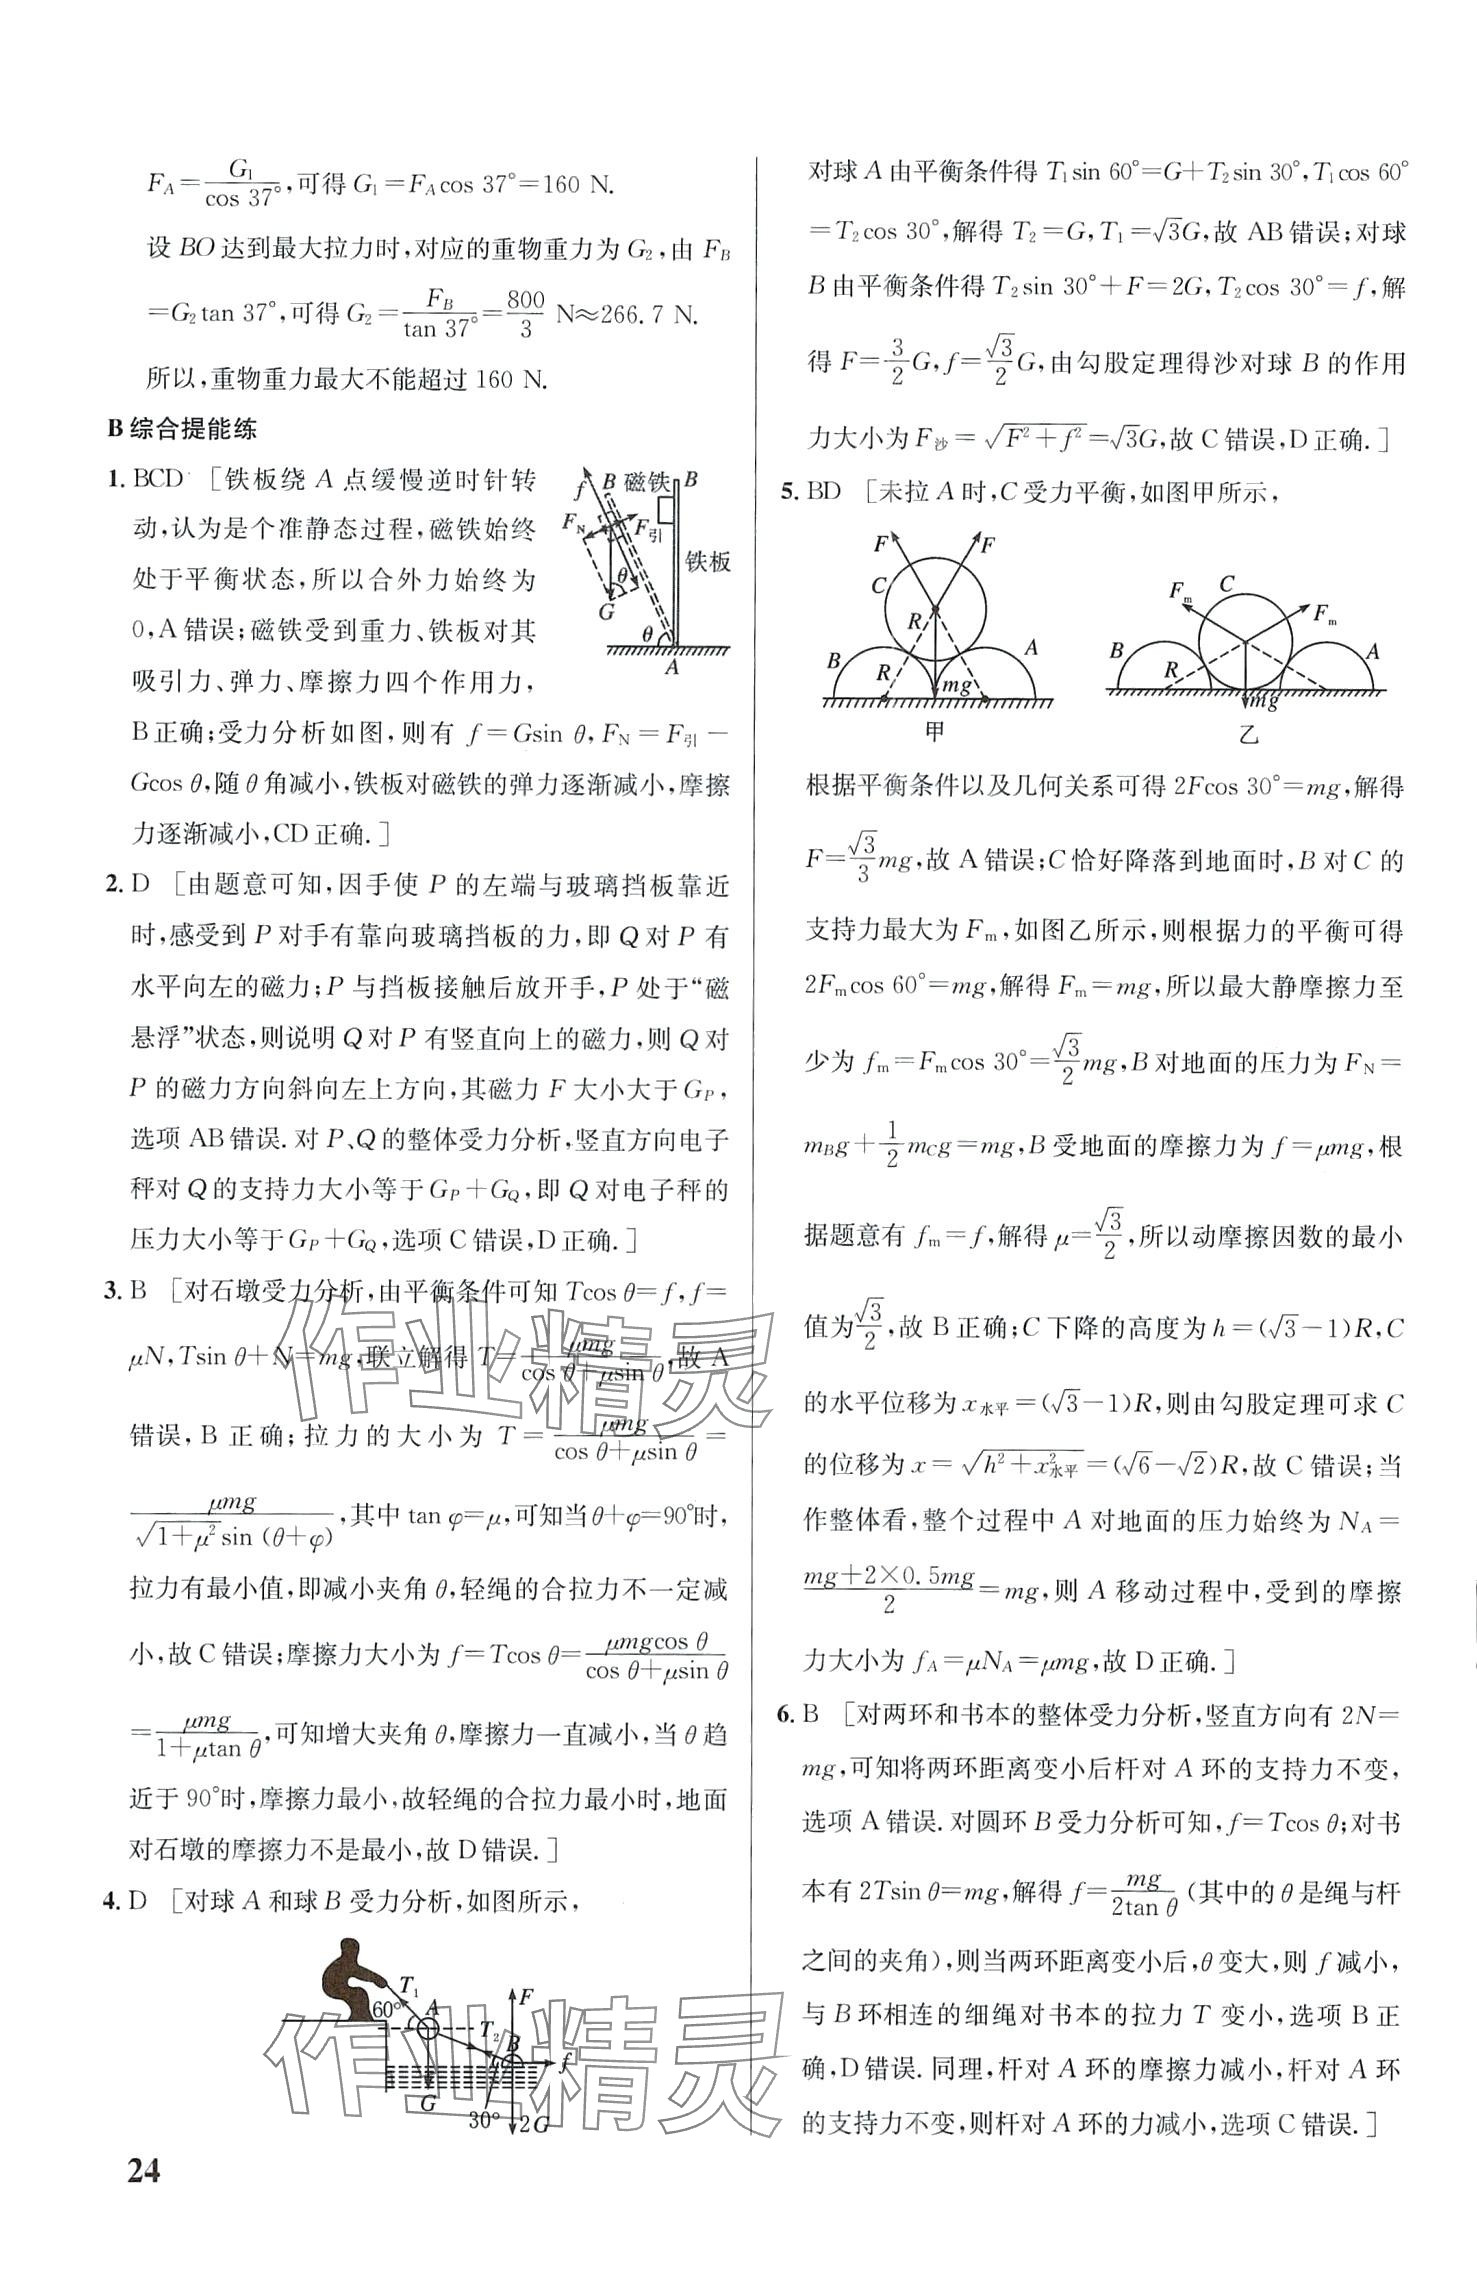 F_A=G₁/cos 37°,可得 G₁=F_A cos 37°=160 N.
设 BO 达到最大拉力时,对应的重物重力为 G₂,由 F_B
=G₂tan 37°,可得 G₂=F_B/tan 37°=800/3 N≈266.7 N.
所以,重物重力最大不能超过 160 N.
B 综合提能练
1. BCD [铁板绕 A 点缓慢逆时针转
动,认为是个准静态过程,磁铁始终
处于平衡状态,所以合外力始终为
0,A 错误;磁铁受到重力、铁板对其
吸引力、弹力、摩擦力四个作用力,
f B 磁铁 B
F_N F_引
铁板
θ
G
θ
A
B 正确;受力分析如图,则有 f=Gsin θ,F_N=F_引−
Gcos θ,随 θ 角减小,铁板对磁铁的弹力逐渐减小,摩擦
力逐渐减小,CD 正确.]
2. D [由题意可知,因手使 P 的左端与玻璃挡板靠近
时,感受到 P 对手有靠向玻璃挡板的力,即 Q 对 P 有
水平向左的磁力;P 与挡板接触后放开手,P 处于“磁
悬浮”状态,则说明 Q 对 P 有竖直向上的磁力,则 Q 对
P 的磁力方向斜向左上方向,其磁力 F 大小大于 G_P,
选项 AB 错误.对 P、Q 的整体受力分析,竖直方向电子
秤对 Q 的支持力大小等于 G_P+G_Q,即 Q 对电子秤的
压力大小等于 G_P+G_Q,选项 C 错误,D 正确.]
3. B [对石墩受力分析,由平衡条件可知 Tcos θ=f,f=
μN,Tsin θ+N=mg,联立解得 T=μmg/(cos θ+μsin θ),故 A
错误,B 正确;拉力的大小为 T=μmg/(cos θ+μsin θ)=
μmg/(√(1+μ²)sin (θ+φ)),其中 tan φ=μ,可知当 θ+φ=90°时,
拉力有最小值,即减小夹角 θ,轻绳的合拉力不一定减
小,故 C 错误;摩擦力大小为 f=Tcos θ=μmgcos θ/(cos θ+μsin θ)
=μmg/(1+μtan θ),可知增大夹角 θ,摩擦力一直减小,当 θ 趋
近于 90°时,摩擦力最小,故轻绳的合拉力最小时,地面
对石墩的摩擦力不是最小,故 D 错误.]
4. D [对球 A 和球 B 受力分析,如图所示,
T₁
60° A F
T₂ B
f
G
30° 2G
24
对球 A 由平衡条件得 T₁sin 60°=G+T₂sin 30°,T₁cos 60°
=T₂cos 30°,解得 T₂=G,T₁=√3G,故 AB 错误;对球
B 由平衡条件得 T₂sin 30°+F=2G,T₂cos 30°=f,解
得 F=3/2 G,f=√3/2 G,由勾股定理得沙对球 B 的作用
力大小为 F_沙=√(F²+f²)=√3G,故 C 错误,D 正确.]
5. BD [未拉 A 时,C 受力平衡,如图甲所示,
F F
C
R
B A
R
mg
甲
C
F_m F_m
B A
R
mg
乙
根据平衡条件以及几何关系可得 2Fcos 30°=mg,解得
F=√3/3 mg,故 A 错误;C 恰好降落到地面时,B 对 C 的
支持力最大为 F_m,如图乙所示,则根据力的平衡可得
2F_m cos 60°=mg,解得 F_m=mg,所以最大静摩擦力至
少为 f_m=F_m cos 30°=√3/2 mg,B 对地面的压力为 F_N=
m_B g+1/2 m_C g=mg,B 受地面的摩擦力为 f=μmg,根
据题意有 f_m=f,解得 μ=√3/2,所以动摩擦因数的最小
值为√3/2,故 B 正确;C 下降的高度为 h=(√3−1)R,C
的水平位移为 x_水平=(√3−1)R,则由勾股定理可求 C
的位移为 x=√(h²+x²_水平)=(√6−√2)R,故 C 错误;当
作整体看,整个过程中 A 对地面的压力始终为 N_A=
(mg+2×0.5mg)/2=mg,则 A 移动过程中,受到的摩擦
力大小为 f_A=μN_A=μmg,故 D 正确.]
6. B [对两环和书本的整体受力分析,竖直方向有 2N=
mg,可知将两环距离变小后杆对 A 环的支持力不变,
选项 A 错误.对圆环 B 受力分析可知,f=Tcos θ;对书
本有 2Tsin θ=mg,解得 f=mg/(2tan θ) (其中的 θ 是绳与杆
之间的夹角),则当两环距离变小后,θ 变大,则 f 减小,
与 B 环相连的细绳对书本的拉力 T 变小,选项 B 正
确,D 错误.同理,杆对 A 环的摩擦力减小,杆对 A 环
的支持力不变,则杆对 A 环的力减小,选项 C 错误.]
作业精灵
作业精灵